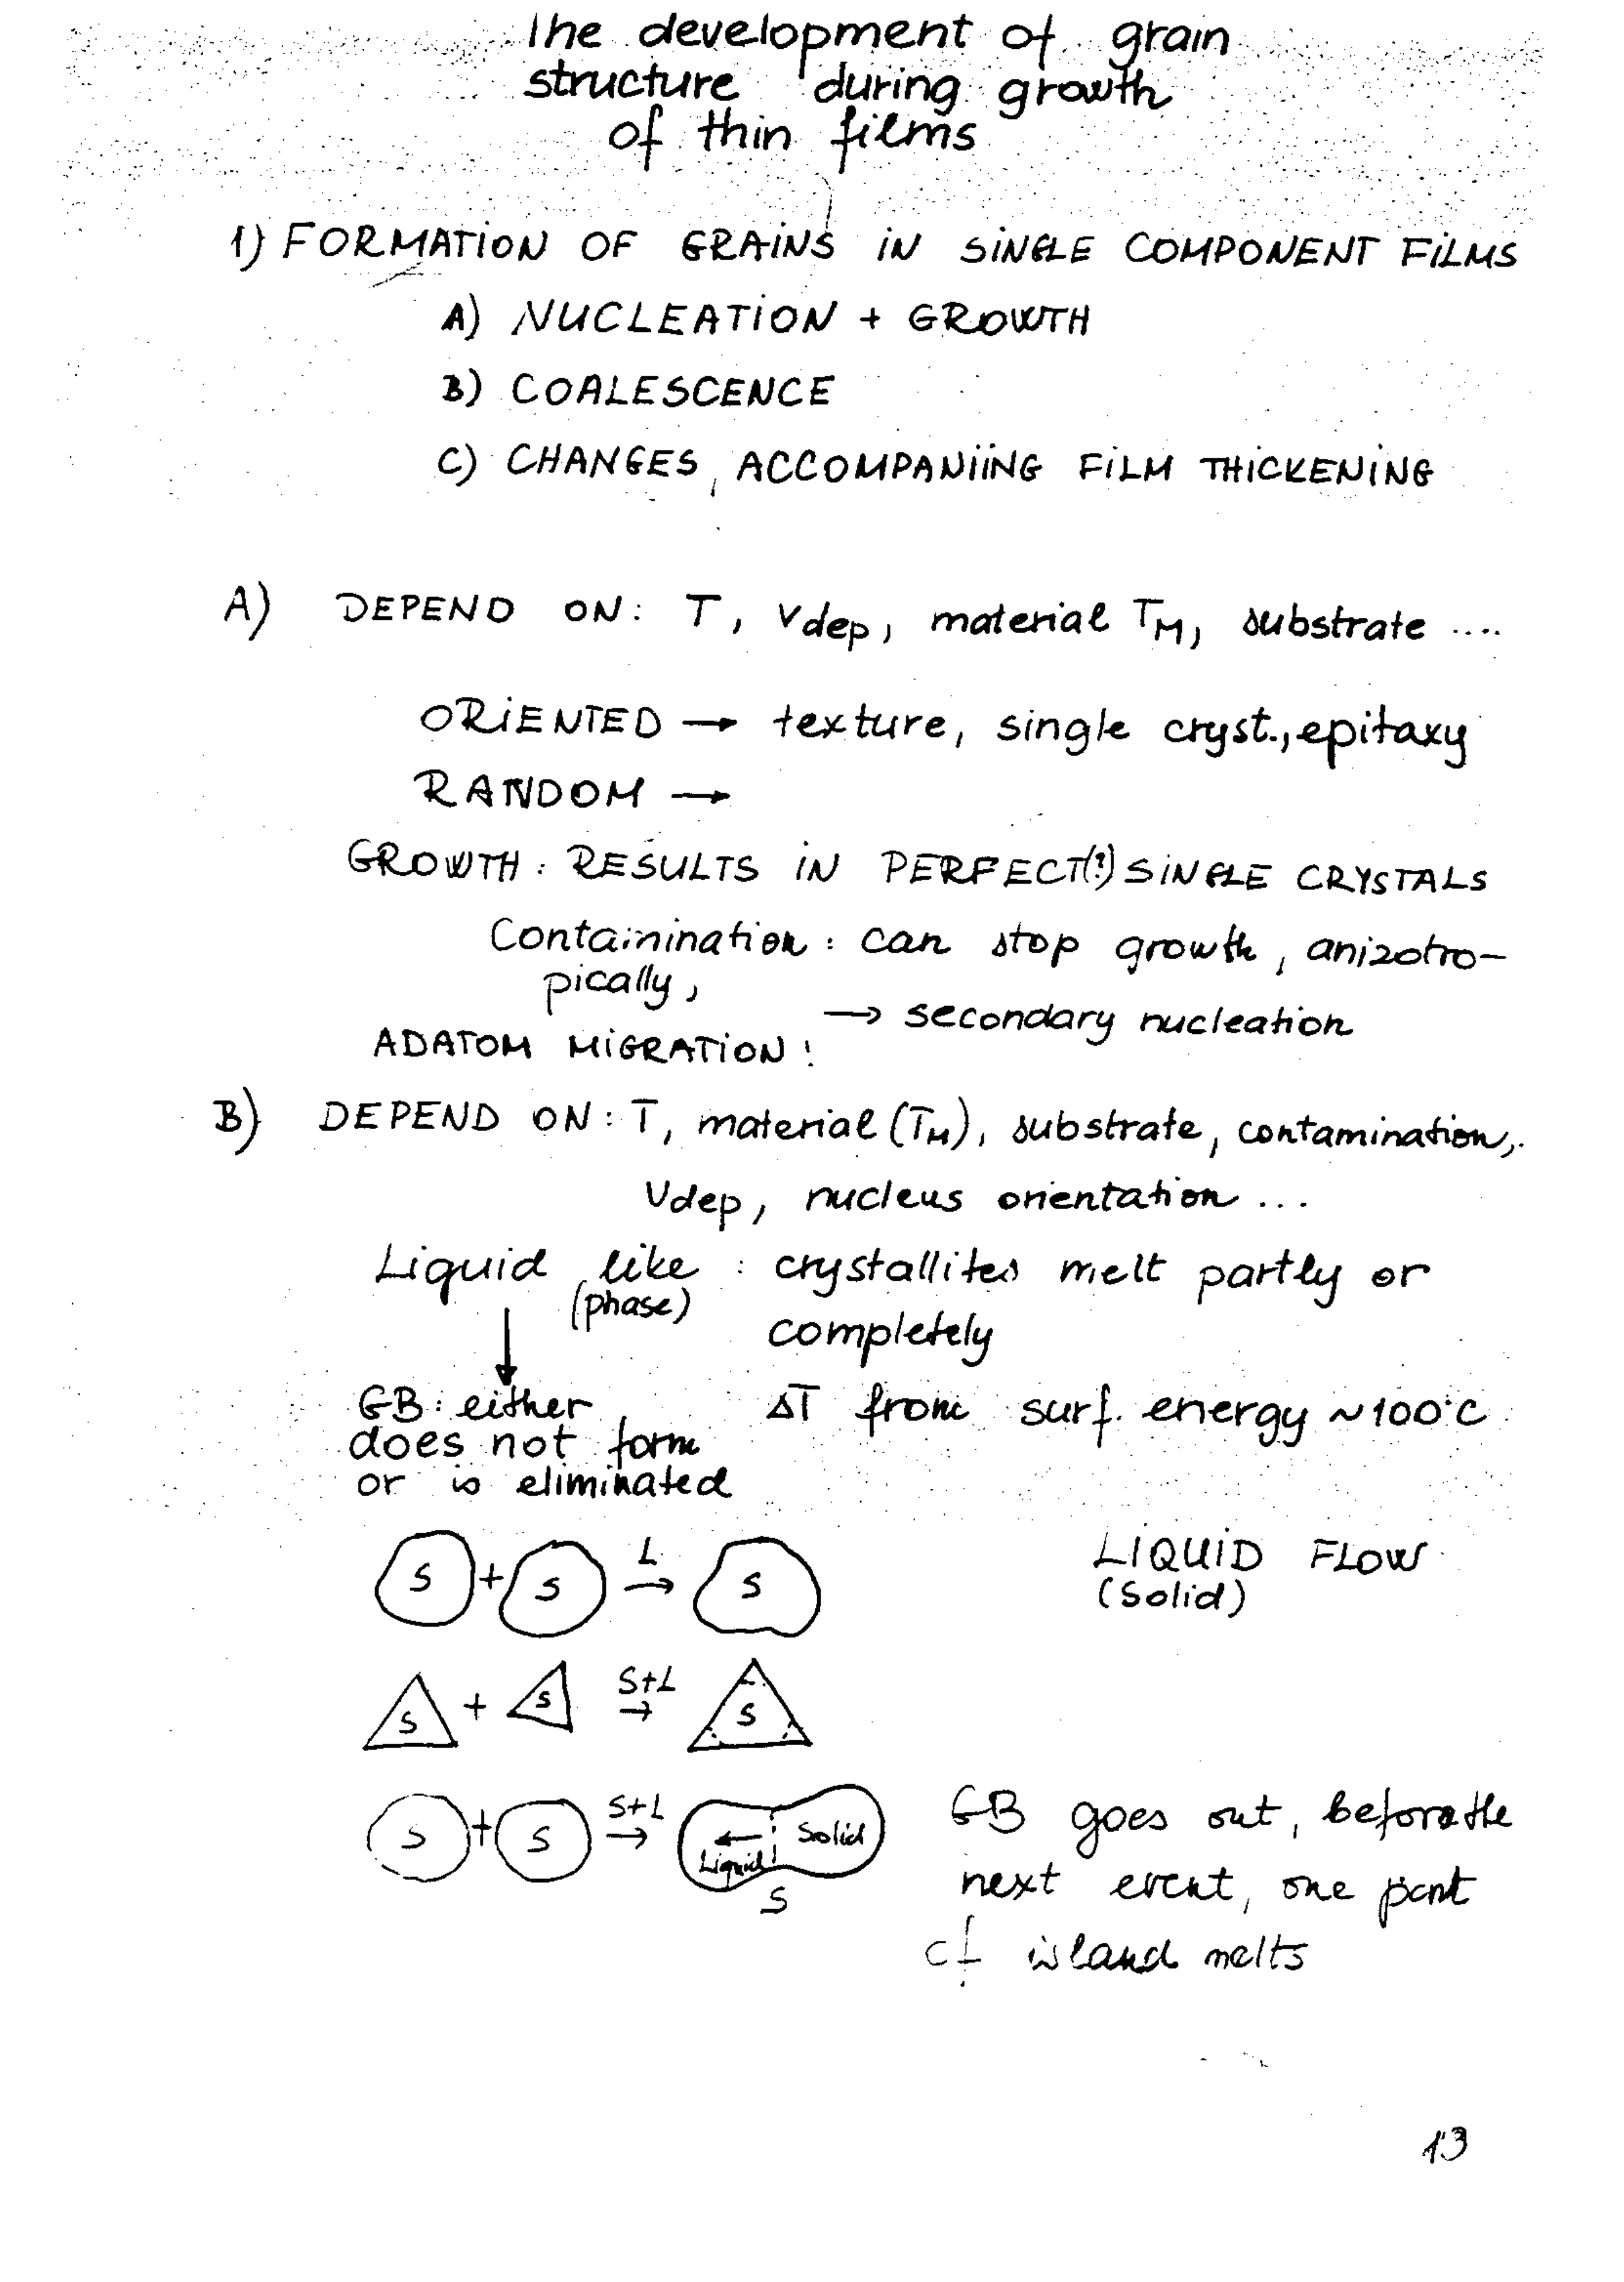 The development of grain
structure during growth
of thin films
1) FORMATION OF GRAINS IN SINGLE COMPONENT FILMS
A) NUCLEATION + GROWTH
B) COALESCENCE
C) CHANGES, ACCOMPANIING FILM THICKENING
A) DEPEND ON: T, vdep, material TM, substrate ....
ORIENTED → texture, single cryst., epitaxy
RANDOM →
GROWTH: RESULTS IN PERFECT(?) SINGLE CRYSTALS
Contamination: can stop growth, anizotro-
pically,
→ secondary nucleation
ADATOM MIGRATION!
B) DEPEND ON: T, material (TM), substrate, contamination,
vdep, nucleus orientation ...
Liquid like : crystallites melt partly or
(phase)
completely
GB: either ΔT from surf. energy ~100°C
does not form
or is eliminated
S + S L → S LIQUID FLOW
(Solid)
S + S S+L → S
S + S S+L → ← Liquid Solid S
GB goes out, before the
next event, one part
of island melts
13